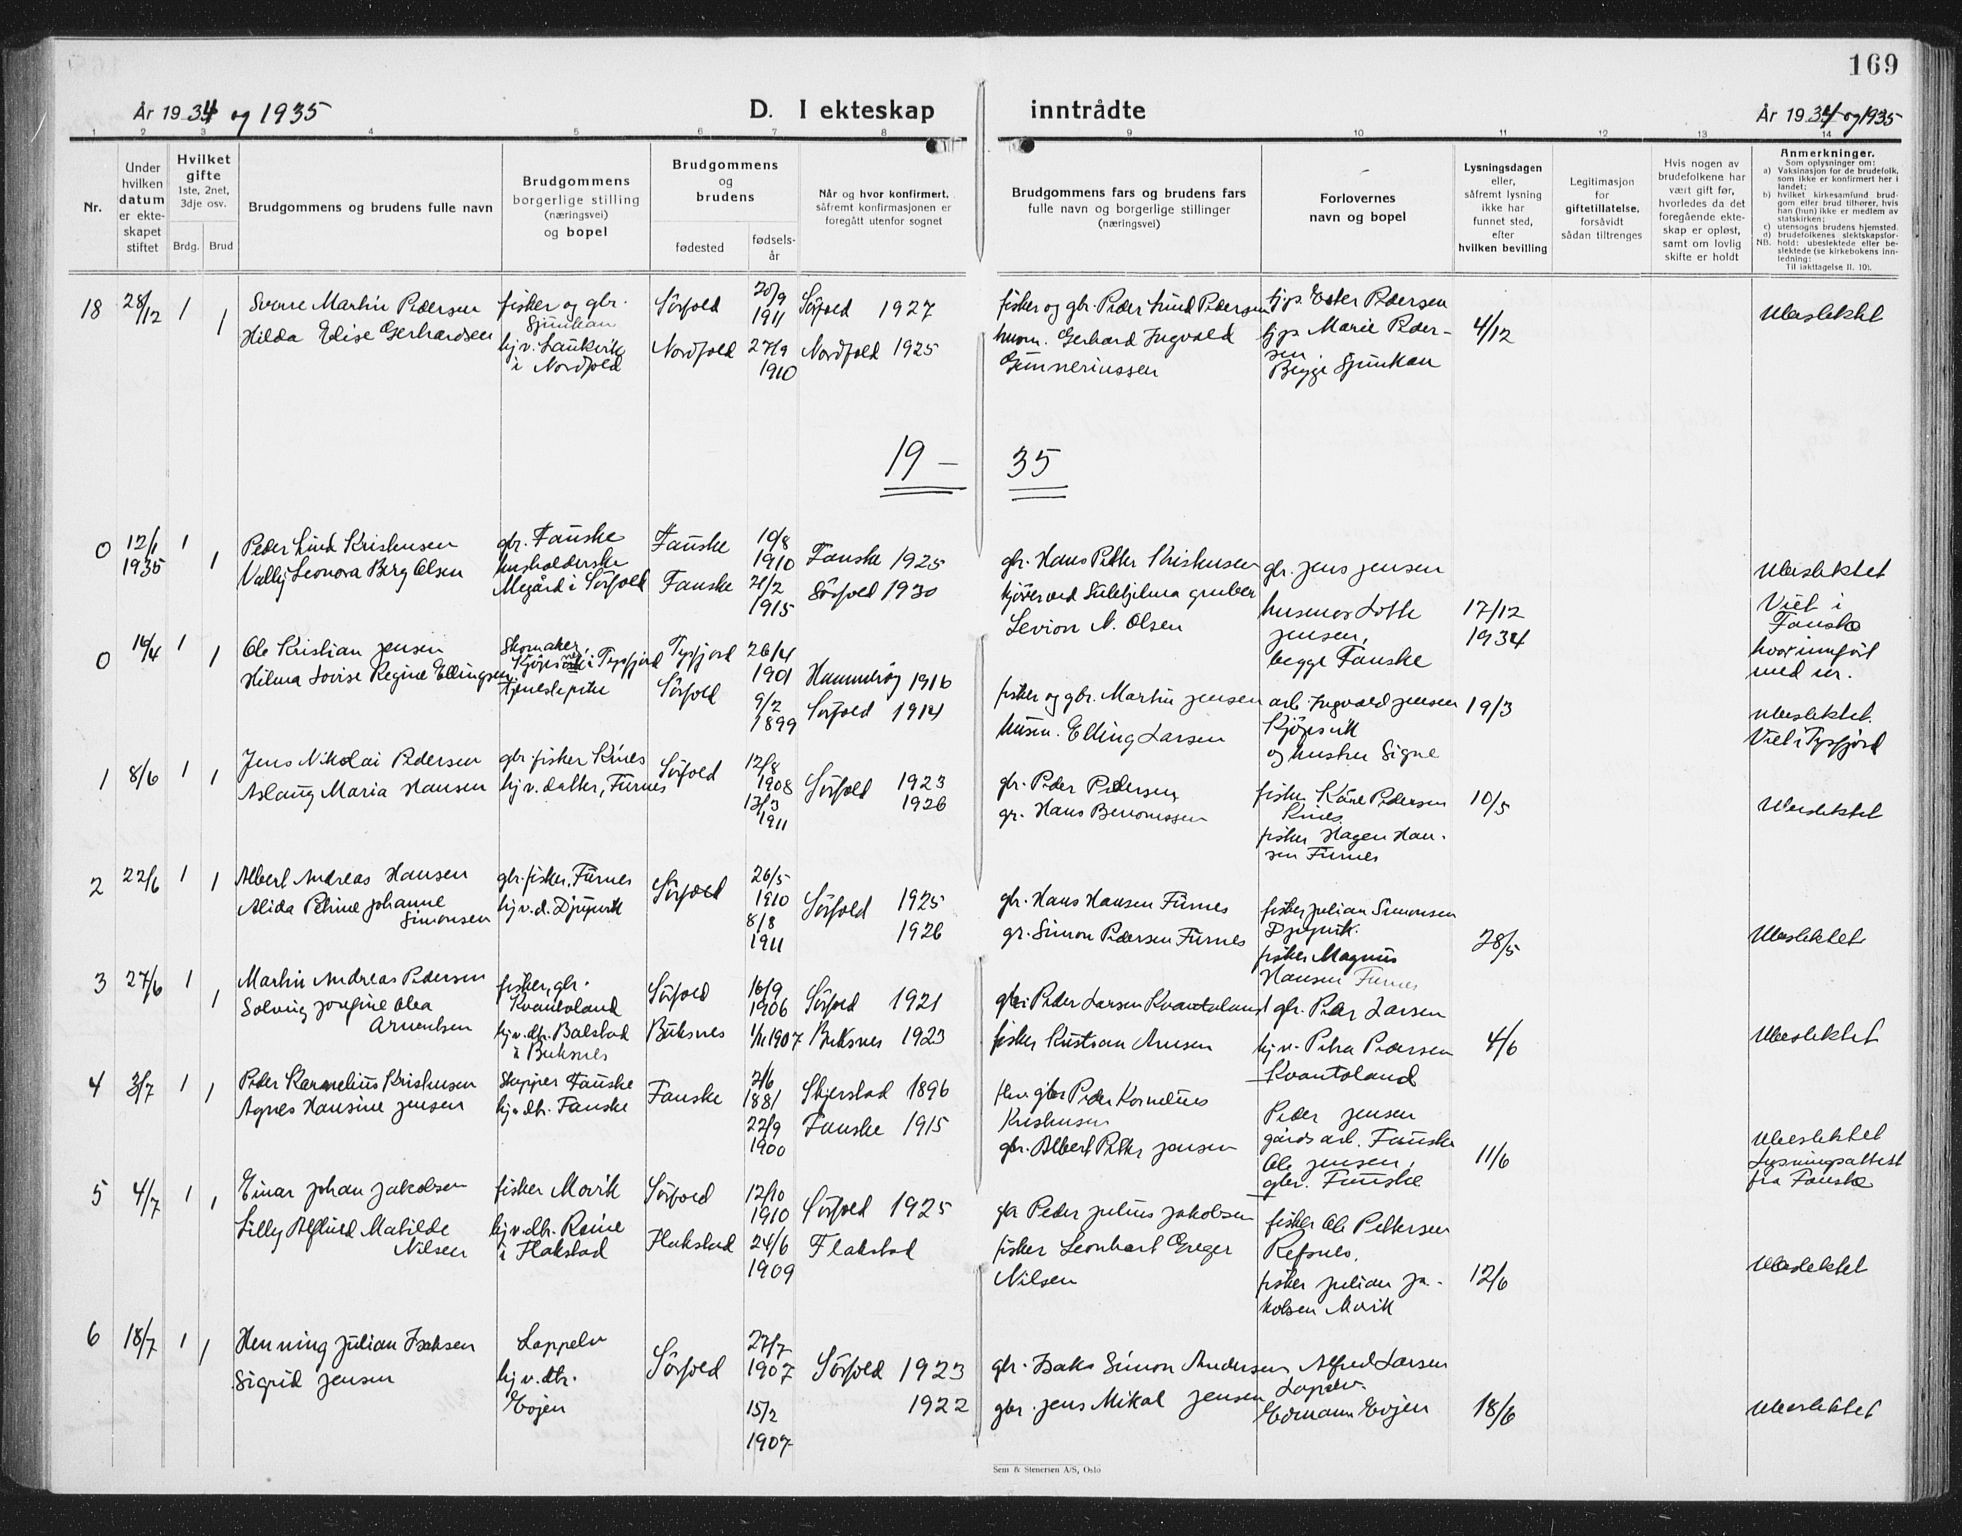 169
År 1934 og 1935
D. I ekteskap inntrådte
År 1934 og 1935
1 2 3 4 5 6 7 8 9 10 11 12 13 14
Nr.
Under hvilken datum er ekteskapet stiftet
Hvilket gifte 1ste, 2net, 3dje osv.
Brdg. Brud
Brudgommens og brudens fulle navn
Brudgommens borgerlige stilling (næringsvei) og bopel
Brudgommens og brudens
fødested
fødselsår
Når og hvor konfirmert, såfremt konfirmasjonen er foregått utenfor sognet
Brudgommens fars og brudens fars fulle navn og borgerlige stillinger (næringsvei)
Forlovernes navn og bopel
Lysningsdagen eller, såfremt lysning ikke har funnet sted, efter hvilken bevilling
Legitimasjon for giftetillatelse, forsåvidt sådan tiltrenges
Hvis nogen av brudefolkene har vært gift før, hvorledes da det foregående ekteskap er opløst, samt om lovlig skifte er holdt
Anmerkninger.
Som oplysninger om:
a) Vaksinasjon for de brudefolk, som ikke er konfirmert her i landet;
b) hvilket kirkesamfund brudgom eller brud tilhører, hvis han (hun) ikke er medlem av statskirken;
c) utensogns brudens hjemsted.
d) brudefolkenes slektskapsforhold: ubeslektede eller beslektede (se kirkebokens innledning:
NB.
Til iakttagelse II. 10).
18 28/12 1 1
Sverre Martin Pedersen
Hilda Elise Gerhardsen
fisker og gbr. Sjunkan
hj.v. Laukvik i Nordfold
Sørfold 20/9 1911 Sørfold 1927
Nordfold 27/9 1910 Nordfold 1925
fisker og gbr. Peder Lund Pedersen
husm. Gerhard Ingvald Gunneriussen
Ester Pedersen
Marie Pedersen
Begge Sjunkan
4/12
Ubeslektet
19 – 35
0 12/1 1935 1 1
Peder Lund Kristensen
Vally Leonora Berg Olsen
gbr. Fauske
husholderske Megård i Sørfold
Fauske 10/8 1910 Fauske 1925
Fauske 21/2 1915 Sørfold 1930
gbr. Hans Petter Kristensen
kjører ved Sulitjelma gruber Levion N. Olsen
gbr. Jens Jensen
husmor Lotte Jensen, begge Fauske
17/12 1934
Ubeslektet
Viet i Fauske
hvor innført med nr.
0 14/4 1 1
Ole Kristian Jensen
Hilma Lovise Regine Ellingsen
Skomaker, Kjøpsvik i Tysfjord
tjenestepike
Tysfjord 26/4 1901 Hammerøy 1916
Sørfold 9/2 1899 Sørfold 1914
fisker og gbr. Martin Jensen
husm. Elling Larsen
arb. Ingvald Jensen Kjøpsvik
og hustru Signe
19/3
Ubeslektet.
Viet i Tysfjord
1 8/6 1 1
Jens Nikolai Pedersen
Aslaug Maria Hansen
gbr. fisker Kines
hj.v. datter, Furnes
Sørfold 12/8 1908 Sørfold 1923
13/3 1911 1926
gbr. Peder Pedersen
gr. Hans Benonissen
fisker Kåre Pedersen Kines
fisker Hagen Hansen Furnes
10/5
Ubeslektet
2 22/6 1 1
Albert Andreas Hansen
Alida Petrine Johanne Simonsen
gbr. fisker, Furnes
hj.v.d. Djupvik
Sørfold 26/5 1910 Sørfold 1925
8/8 1911 1926
gbr. Hans Hansen Furnes
gr. Simon Pedersen Furnes
fisker Julian Simonsen Djupvik.
fisker Magnus Hansen Furnes
28/5
Ubeslektet
3 27/6 1 1
Martin Andreas Pedersen
Solveig Josefine Olea Arnentsen
fisker, gbr. Kvantoland
hj.v.dtr. Balstad i Buksnes
Sørfold 16/9 1906 Sørfold 1921
Buksnes 1/11 1907 Buksnes 1923
gbr. Peder Larsen Kvantoland
fisker Kristian Arnsen
gbr. Peder Larsen
hj.v. Petra Pedersen Kvantoland
4/6
Ubeslektet
4 3/7 1 1
Peder Kornelius Kristensen
Agnes Hansine Jensen
Skipper Fauske
hj.v.dtr. Fauske
Fauske 2/6 1881 Skjerstad 1896
22/9 1900 Fauske 1915
gbr Peder Kornelius Kristensen
gbr. Albert Petter Jensen
Peder Jensen gårdsarb. Fauske
Ole Jensen, gbr. Fauske
11/6
Ubeslektet
Lysningsattest fra Fauske
5 4/7 1 1
Einar Johan Jakobsen
Lilly Alfhild Matilde Nilsen
fisker Movik
hj.v.dtr. Reine i Flakstad
Sørfold 12/10 1910 Sørfold 1925
Flakstad 24/6 1909 Flakstad
gbr Peder Julius Jakobsen
fisker Leonhart Greger Nilsen
fisker Ole Pettersen Refsnes,
fisker Julian Jakobsen Movik
12/6
Ubeslektet
6 18/7 1 1
Henning Julian Isaksen
Sigrid Jensen
Loppelv
hj.v.dtr. Evjen
Sørfold 27/7 1907 Sørfold 1923
15/2 1907 1922
gbr. Isaks Simon Andersen
gbr. Jens Mikal Jensen
Alfred Larsen Lapelv.
Edmann Evjen
18/6
Ubeslektet
Sem & Stenersen A/S, Oslo